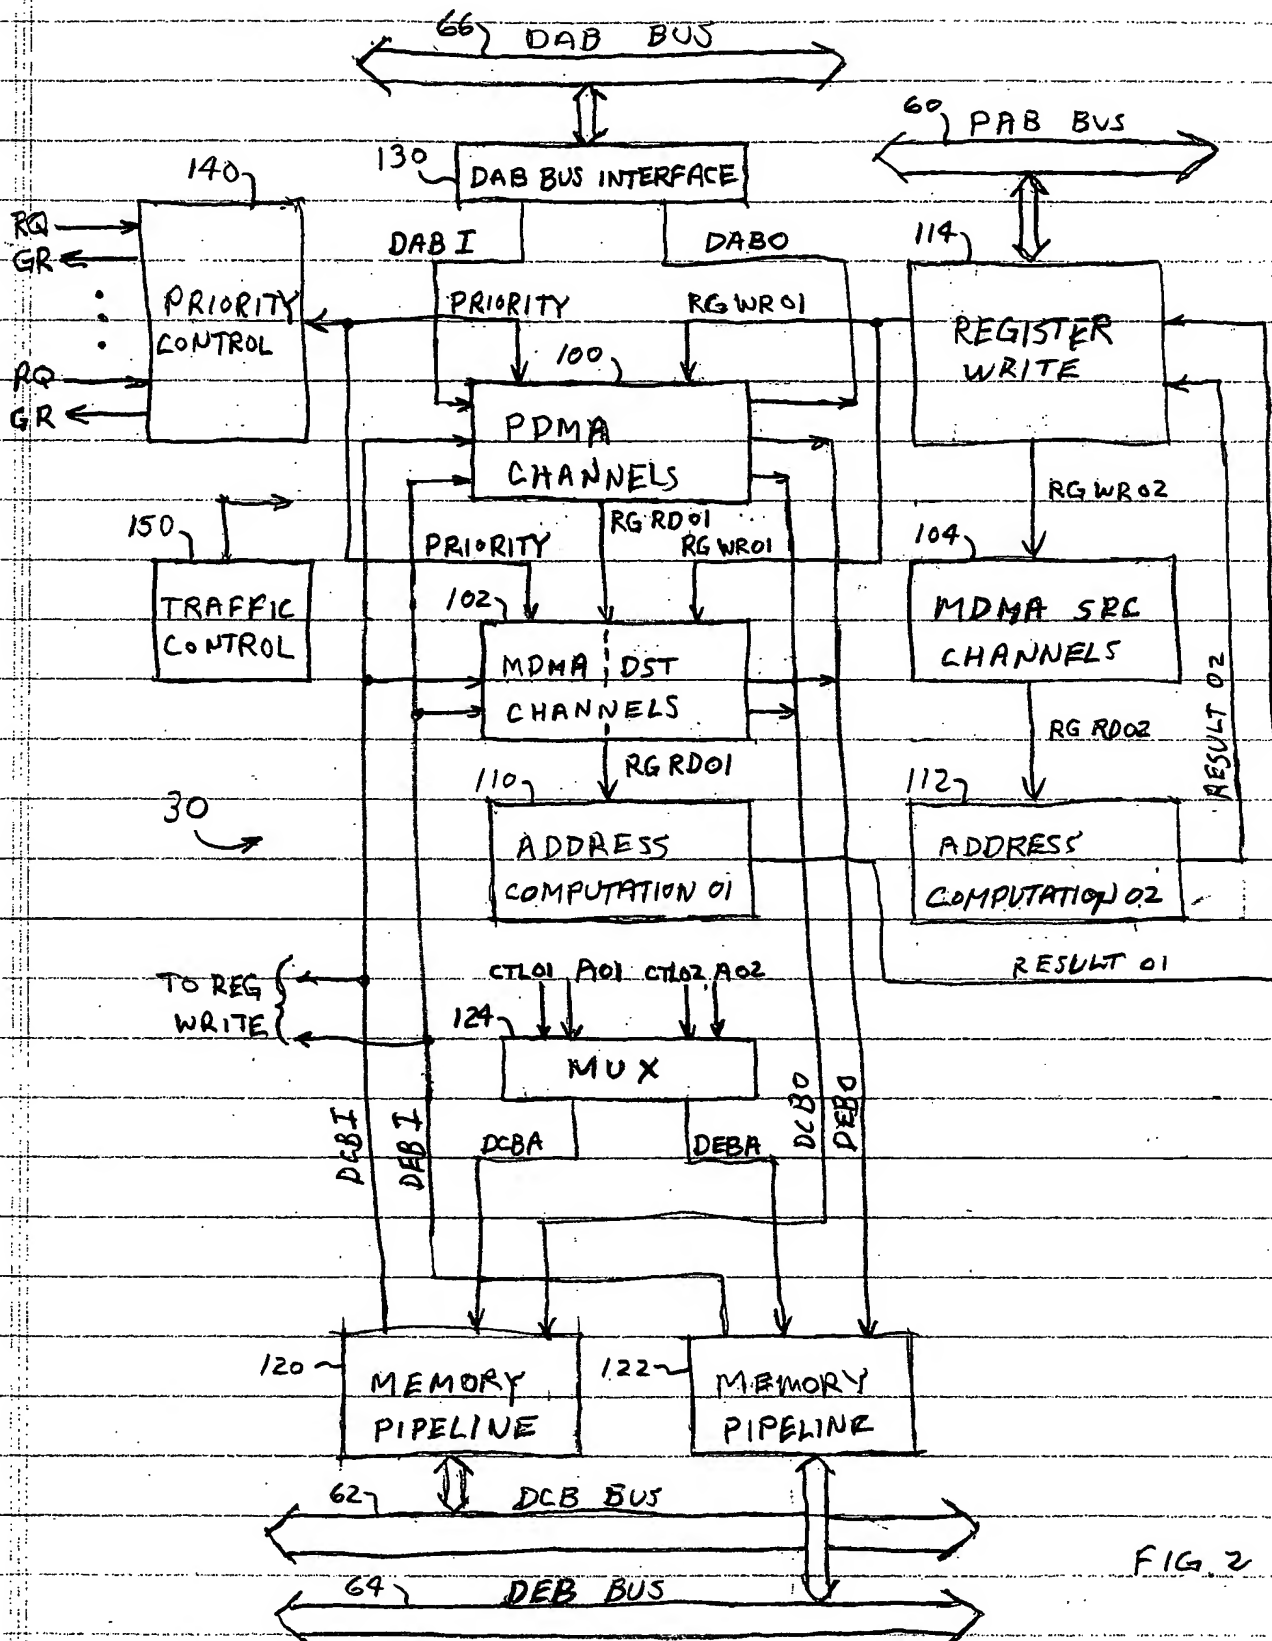 66 DAB BUS
60 PAB BUS
130 DAB BUS INTERFACE
140
RQ
GR
PRIORITY
CONTROL
RQ
GR
DABI
DABO
114
PRIORITY
RGWR01
REGISTER
WRITE
100
PDMA
CHANNELS
RGWR02
150
RGRD01
PRIORITY
RGWR01
104
TRAFFIC
CONTROL
102
MDMA DST
CHANNELS
MDMA SRC
CHANNELS
RGRD01
RGRD02
RESULT 02
30
110
ADDRESS
COMPUTATION 01
112
ADDRESS
COMPUTATION 02
TO REG
WRITE
CTL01 A01 CTL02 A02
RESULT 01
124
MUX
DCBI
DEBI
DCBA
DEBA
DCBO
DEBO
120
MEMORY
PIPELINE
122
MEMORY
PIPELINE
62 DCB BUS
64 DEB BUS
FIG. 2